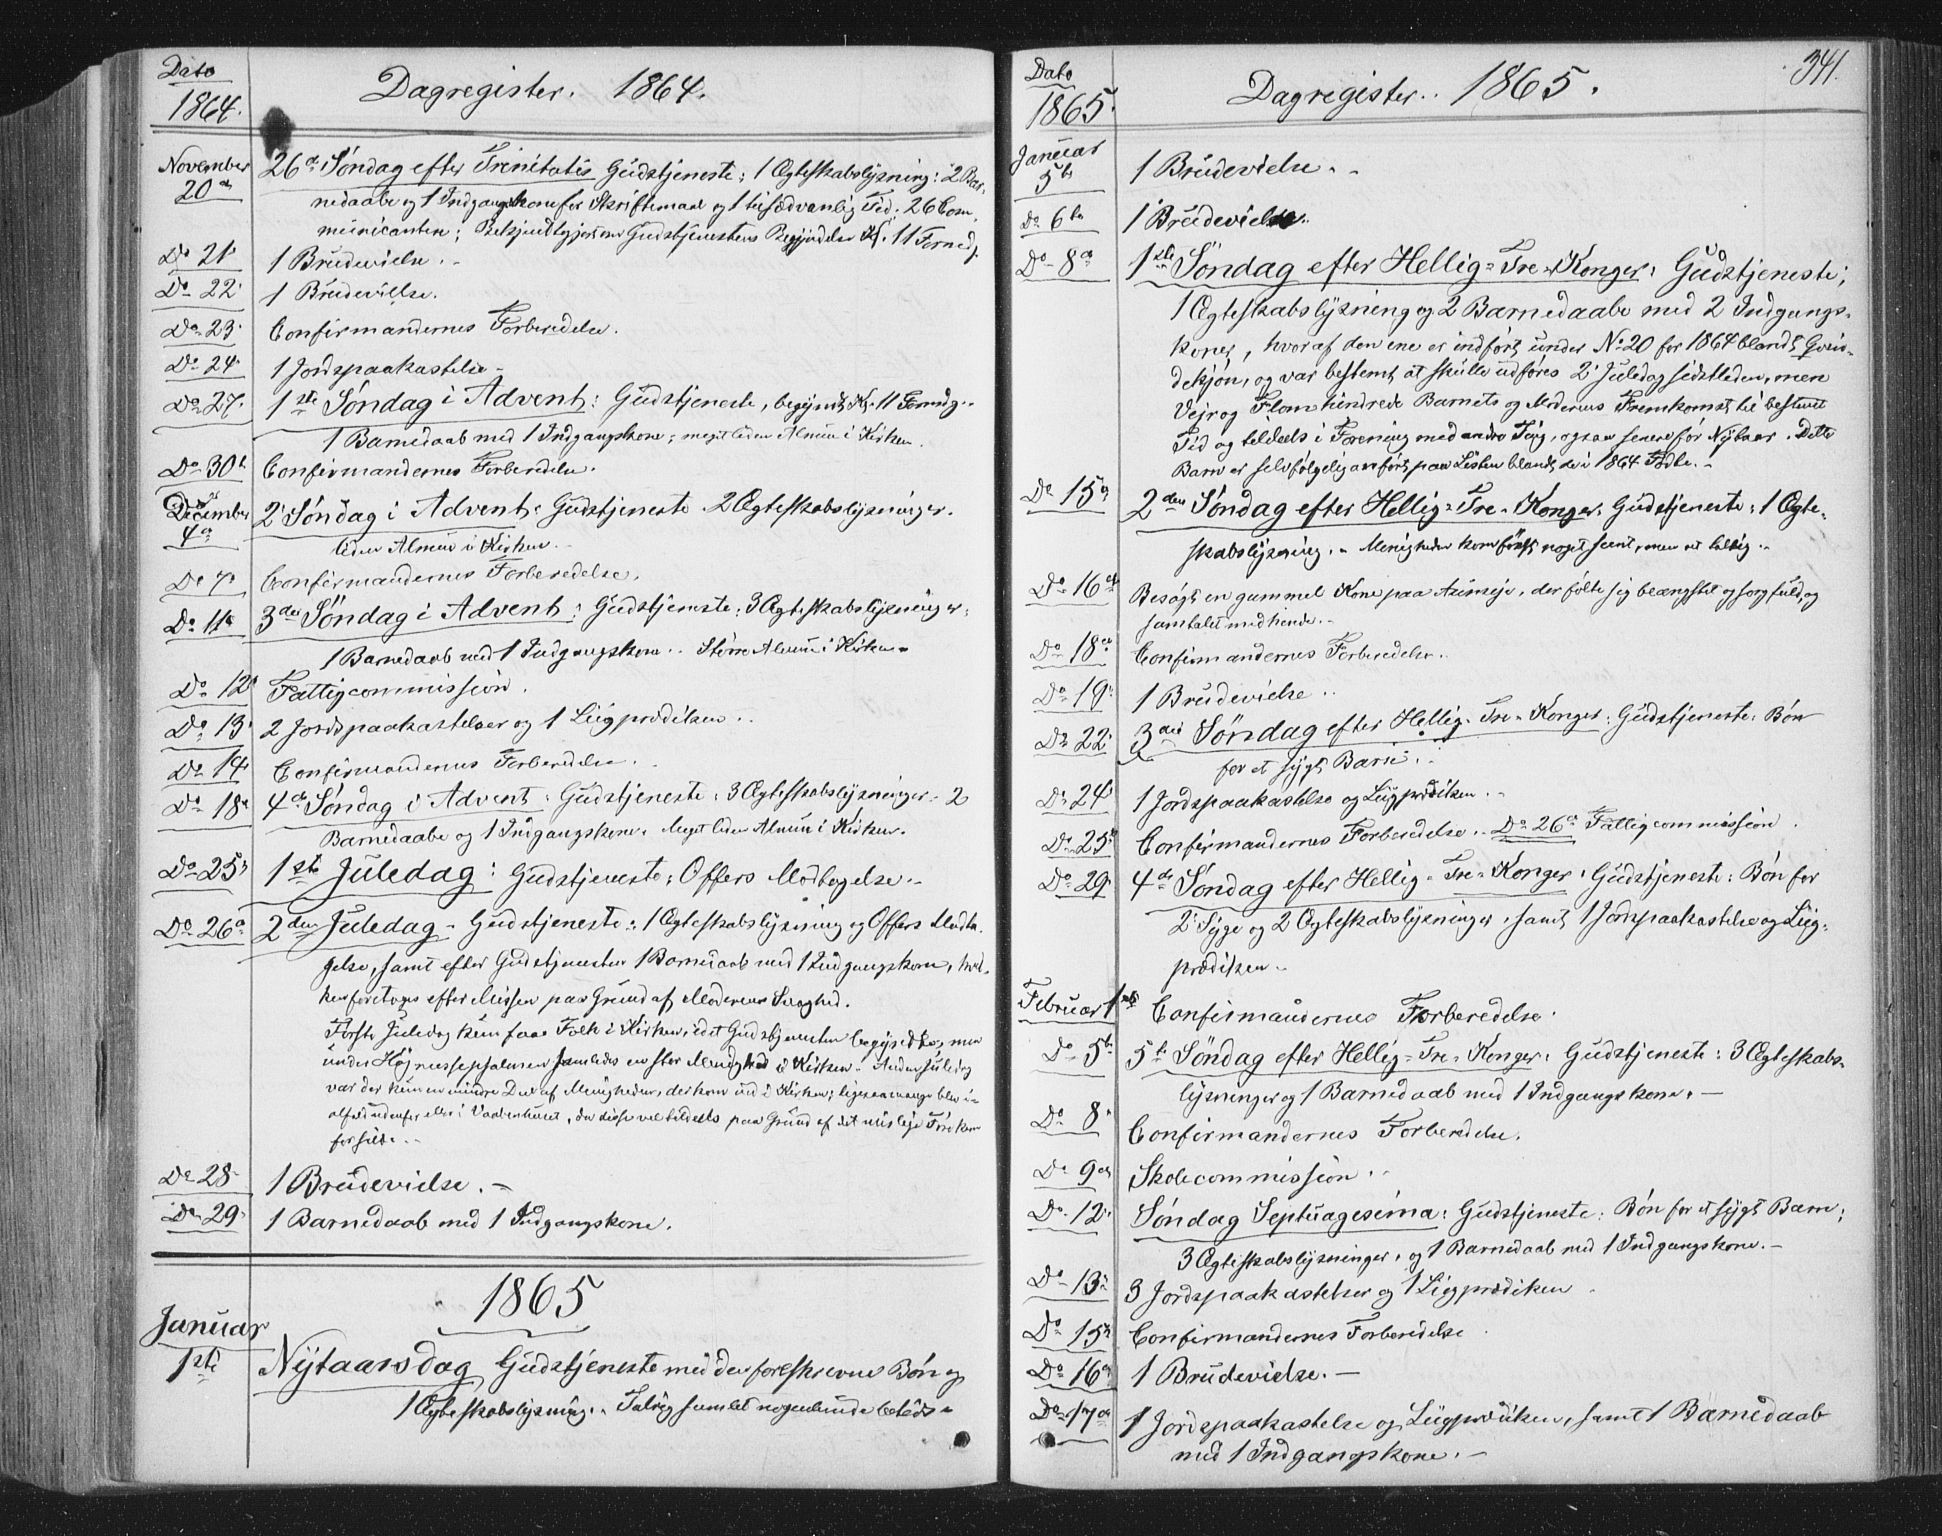 Dato
1864.
Dagregister. 1864.
November
20de
26de Søndag efter Trinitatis Gudstjeneste; 1 Ægteskabslysning; 2 Bar-
nedaabe og 1 Indgangskone før Skriftemaal og 1 til sædvanlig Tid; 26 Com-
municanter; Gudstjenestens Begyndelse Kl. 11 Formdg.
Do 21. 1 Brudevielse.
Do 22. 1 Brudevielse.
Do 23. Confirmandernes Forberedelse.
Do 24. 1 Jordspaakastelse.
Do 27. 1ste Søndag i Advent: Gudstjeneste, begyndt Kl. 11 Formdg.
1 Barnedaab med 1 Indgangskone; meget liden Almue i Kirken.
Do 30te Confirmandernes Forberedelse.
December
4de
2 Søndag i Advent: Gudstjeneste 2 Ægteskabslysninger.
liden Almue i Kirken.
Do 7. Confirmandernes Forberedelse.
Do 11te 3die Søndag i Advent: Gudstjeneste; 3 Ægteskabslysninger;
1 Barnedaab med 1 Indgangskone. Større Almue i Kirken.
Do 12te Fattigcommission.
Do 13. 2 Jordspaakastelser og 1 Liigprædiken.
Do 14. Confirmandernes Forberedelse.
Do 18. 4de Søndag i Advent: Gudstjeneste; 3 Ægteskabslysninger; 2
Barnedaabe og 1 Indgangskone. Meget liden Almue i Kirken.
Do 25. 1ste Juledag: Gudstjeneste; Offers Modtagelse.
Do 26de 2den Juledag Gudstjeneste; 1 Ægteskabslysning og Offers Modta-
gelse, samt efter Gudstjenesten 1 Barnedaab med 1 Indgangskone, hvil-
ken foretoges efter Messen paa Grund af Moderens Svaghed.
Første Juledag kun faae Folk i Kirken, idet Gudstjenesten begyndte, men
under Høimessepsalmen samledes en stor Menighed i Kirken. Anden Juledag
var der kun en mindre Deel af Menigheden, der kom ind i Kirken; ligesaa mange blev i
alfald udenfor eller i Vaabenhuset, da disse vel tildeels paa Grund af det mislige Føre kom
for silde.
Do 28. 1 Brudevielse.
Do 29. 1 Barnedaab med 1 Indgangskone.
1865
Januar
1ste
Nytaarsdag Gudstjeneste med den foreskrevne Bøn og
1 Ægteskabslysning. Talrig samlet nogenlunde
Dato
1865.
Dagregister. 1865.
341.
Januar
5te
1 Brudevielse.
Do 6te 1 Brudevielse.
Do 8de 1ste Søndag efter Hellig-Tre-Konger: Gudstjeneste;
1 Ægteskabslysning og 2 Barnedaabe med 2 Indgangs-
koner, hvoraf den ene er indført under No 20 for 1864 blandt Qvin-
dekjøn, og var bestemt at skulle udføres 2 Juledag sidstleden, men
Vejr og Flom hindrede Barnets og Moderens Fremkomst til bestemt
Tid og tildeels i Forening med andre Ting, ogsaa senere før Nytaar. Dette
Barn er selvfølgelig anført paa Listen blandt de i 1864 Fødte.
Do 15de 2den Søndag efter Hellig-Tre-Konger: Gudstjeneste; 1 Ægte-
skabslysning. Menigheden kom først noget seent, men ret talrig.
Do 16de Besøgt en gammel Kone paa, der følte sig beængstet og sorgfuld, og
samtalet med hende.
Do 18de Confirmandernes Forberedelse.
Do 19. 1 Brudevielse.
Do 22. 3die Søndag efter Hellig-Tre-Konger: Gudstjeneste; Bøn
for et sygt Barn.
Do 24. 1 Jordspaakastelse og Liigprædiken.
Do 25de Confirmandernes Forberedelse. Do 26de Fattigcommission.
Do 29. 4de Søndag efter Hellig-Tre-Konger: Gudstjeneste; Bøn for
2 Syge og 2 Ægteskabslysninger, samt 1 Jordspaakastelse og Liig-
prædiken.
Februar 1ste Confirmandernes Forberedelse.
Do 5te 5te Søndag efter Hellig-Tre-Konger: Gudstjeneste; 3 Ægteskabs-
lysninger og 1 Barnedaab med 1 Indgangskone.
Do 8. Confirmandernes Forberedelse.
Do 9de Skolecommission.
Do 12. Søndag Septuagesima: Gudstjeneste; Bøn for et sygt Barn;
3 Ægteskabslysninger, og 1 Barnedaab med 1 Indgangskone.
Do 13. 3 Jordspaakastelser og 1 Liigprædiken
Do 15. Confirmandernes Forberedelse
Do 16de 1 Brudevielse.
Do 17de 1 Jordspaakastelse og Liigprædiken, samt 1 Barnedaab
med 1 Indgangskone.